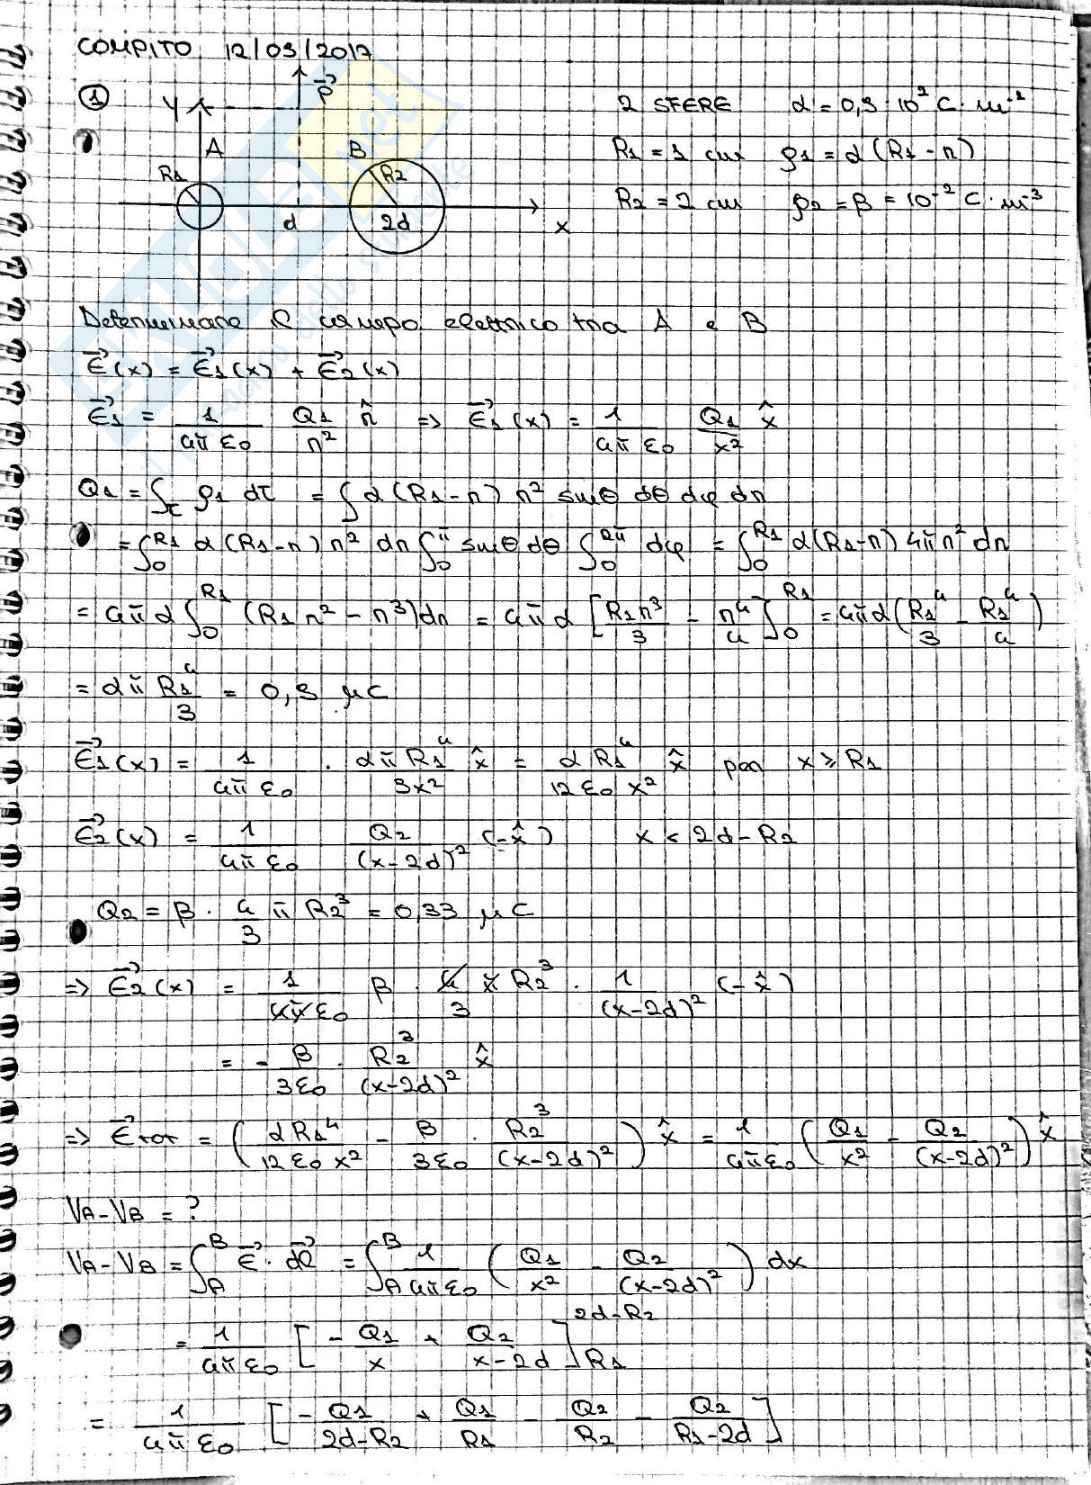 COMPITO 12/03/2012
① Y P⃗ 2 SFERE α = 0,3 · 10² C · m⁻¹
A B R₁ = 1 cm ρ₁ = α (R₁ - r)
R₁ R₂ R₂ = 2 cm ρ₂ = β = 10⁻² C · m⁻³
d 2d x
Determinare il campo elettrico tra A e B
E⃗(x) = E⃗₁(x) + E⃗₂(x)
E⃗₁ = 1/(4π ε₀) Q₁/r² r̂ => E⃗₁(x) = 1/(4π ε₀) Q₁/x² x̂
Q₁ = ∫_τ ρ₁ dτ = ∫ α (R₁ - r) r² sinθ dθ dφ dr
= ∫₀^R₁ α (R₁ - r) r² dr ∫₀^π sinθ dθ ∫₀^2π dφ = ∫₀^R₁ α (R₁ - r) 4π r² dr
= 4π α ∫₀^R₁ (R₁ r² - r³) dr = 4π α [R₁ r³/3 - r⁴/4]₀^R₁ = 4π α (R₁⁴/3 - R₁⁴/4)
= α π R₁⁴/3 = 0,3 μC
E⃗₁(x) = 1/(4π ε₀) · α π R₁⁴/3x² x̂ = α R₁⁴/(12 ε₀ x²) x̂ per x ≥ R₁
E⃗₂(x) = 1/(4π ε₀) Q₂/(x-2d)² (-x̂) x < 2d - R₂
Q₂ = β · 4/3 π R₂³ = 0,33 μC
=> E⃗₂(x) = 1/(4π ε₀) β · 4/3 π R₂³ · 1/(x-2d)² (-x̂)
= - β/(3ε₀) · R₂³/(x-2d)² x̂
=> E⃗TOT = (α R₁⁴/(12 ε₀ x²) - β/(3ε₀) · R₂³/(x-2d)²) x̂ = 1/(4π ε₀) (Q₁/x² - Q₂/(x-2d)²) x̂
VA - VB = ?
VA - VB = ∫_A^B E⃗ · dl⃗ = ∫_A^B 1/(4π ε₀) (Q₁/x² - Q₂/(x-2d)²) dx
= 1/(4π ε₀) [- Q₁/x + Q₂/(x-2d)]_R₁^2d-R₂
= 1/(4π ε₀) [- Q₁/(2d-R₂) + Q₁/R₁ - Q₂/R₂ - Q₂/(R₁-2d)]